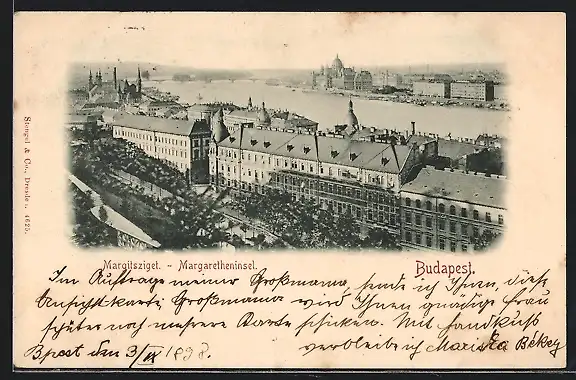 Stengel & Co., Dresden, 4625.
Margitsziget. - Margaretheninsel.
Budapest.
Im Auftrage meiner Großmama, sende ich Ihnen, diese
Ansichtskarte Großmama wird Ihnen gnädige Frau
später noch mehrere Karte schicken. Mit Handkuß
verbleibe ich Mariska Békey
Bpest den 3/IX 1898.